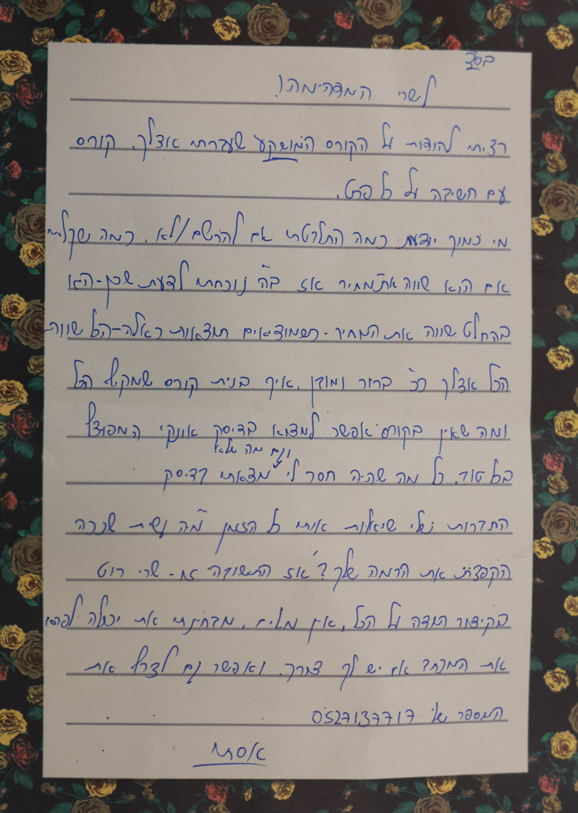 בס"ד
לשרי המדהימה!
רציתי להודות על הקורס המושקע שעברתי אצלך. קורס
עם חשיבה על כל פרט.
מי כמוך יודעת כמה התלבטתי אם להרשם/לא. כמה שקלתי
אם הוא שווה את המחיר אז ב"ה נוכחתי לדעת שכן-הוא
בהחלט שווה את המחיר. כשמוציאים תוצאות כאלה-הכל שווה
הכל אצלך כ"כ ברור ומובן, איך בנית קורס שמקיף הכל
ומה שאין בקורס אפשר למצוא בדיסק אונקי המפוצץ
וגם מה שלא
בכל טוב. כל מה שהיה חסר לי מצאתי בדיסק
החברות שלי שואלות אותי כל הזמן "מה עשית שככה
הקפצת את הרמה שלך?" אז התשובה זה- שרי רוט
בקיצור תודה על הכל, אין מלים, מבחינתי את יכולה לפרסם
את המכתב אם יש לך צורך. ואפשר גם לצרף את
המספר שלי 0527137717
אסתי